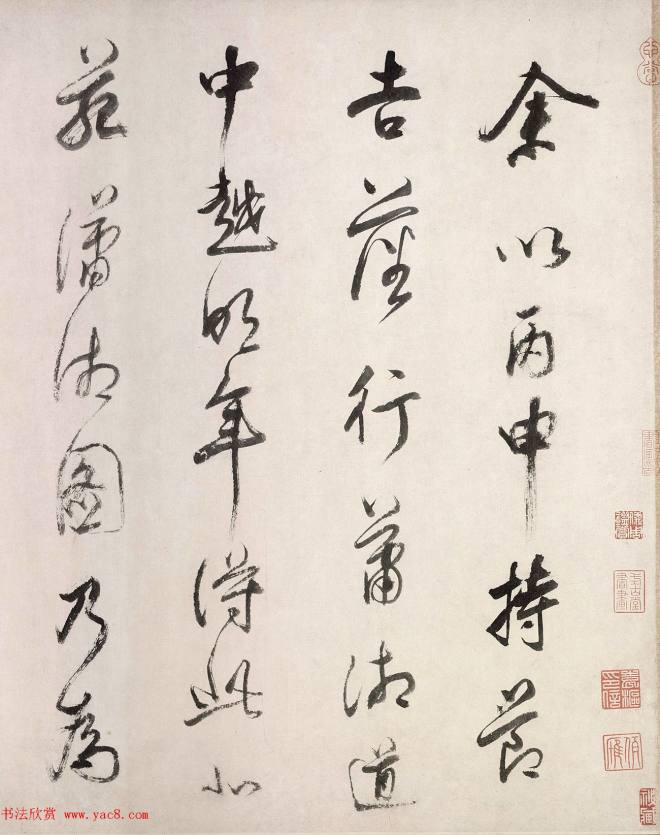 余以丙申持節
吉藩行蕭湘道
中越明年得此北
苑瀟湘圖乃為
书法欣赏 www.yac8.com